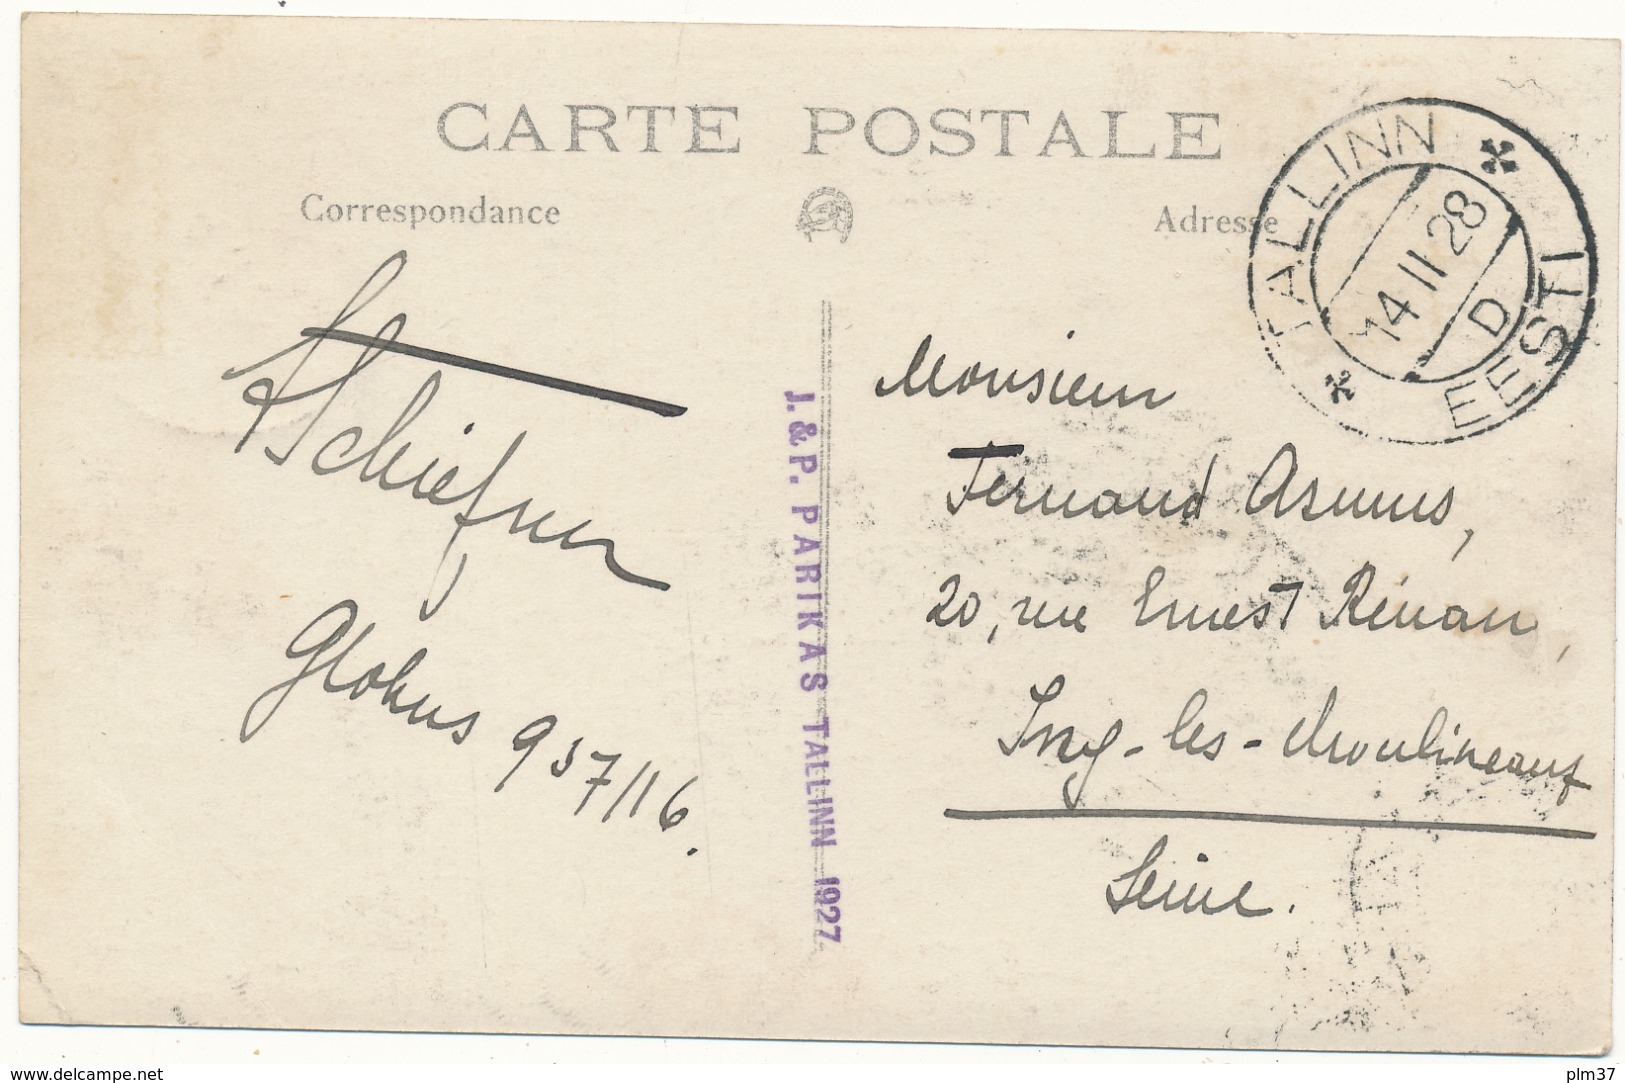 CARTE POSTALE
Correspondance
Adresse
TALLINN
14 II 28
D
EESTI
Schiefner
Globus 957/16.
J. & P. PARIKAS TALLINN 1927
Monsieur
Fernand Asmus,
20, rue Ernest Rénan,
Issy-les-Moulineaux
Seine.
www.delcampe.net
plm37